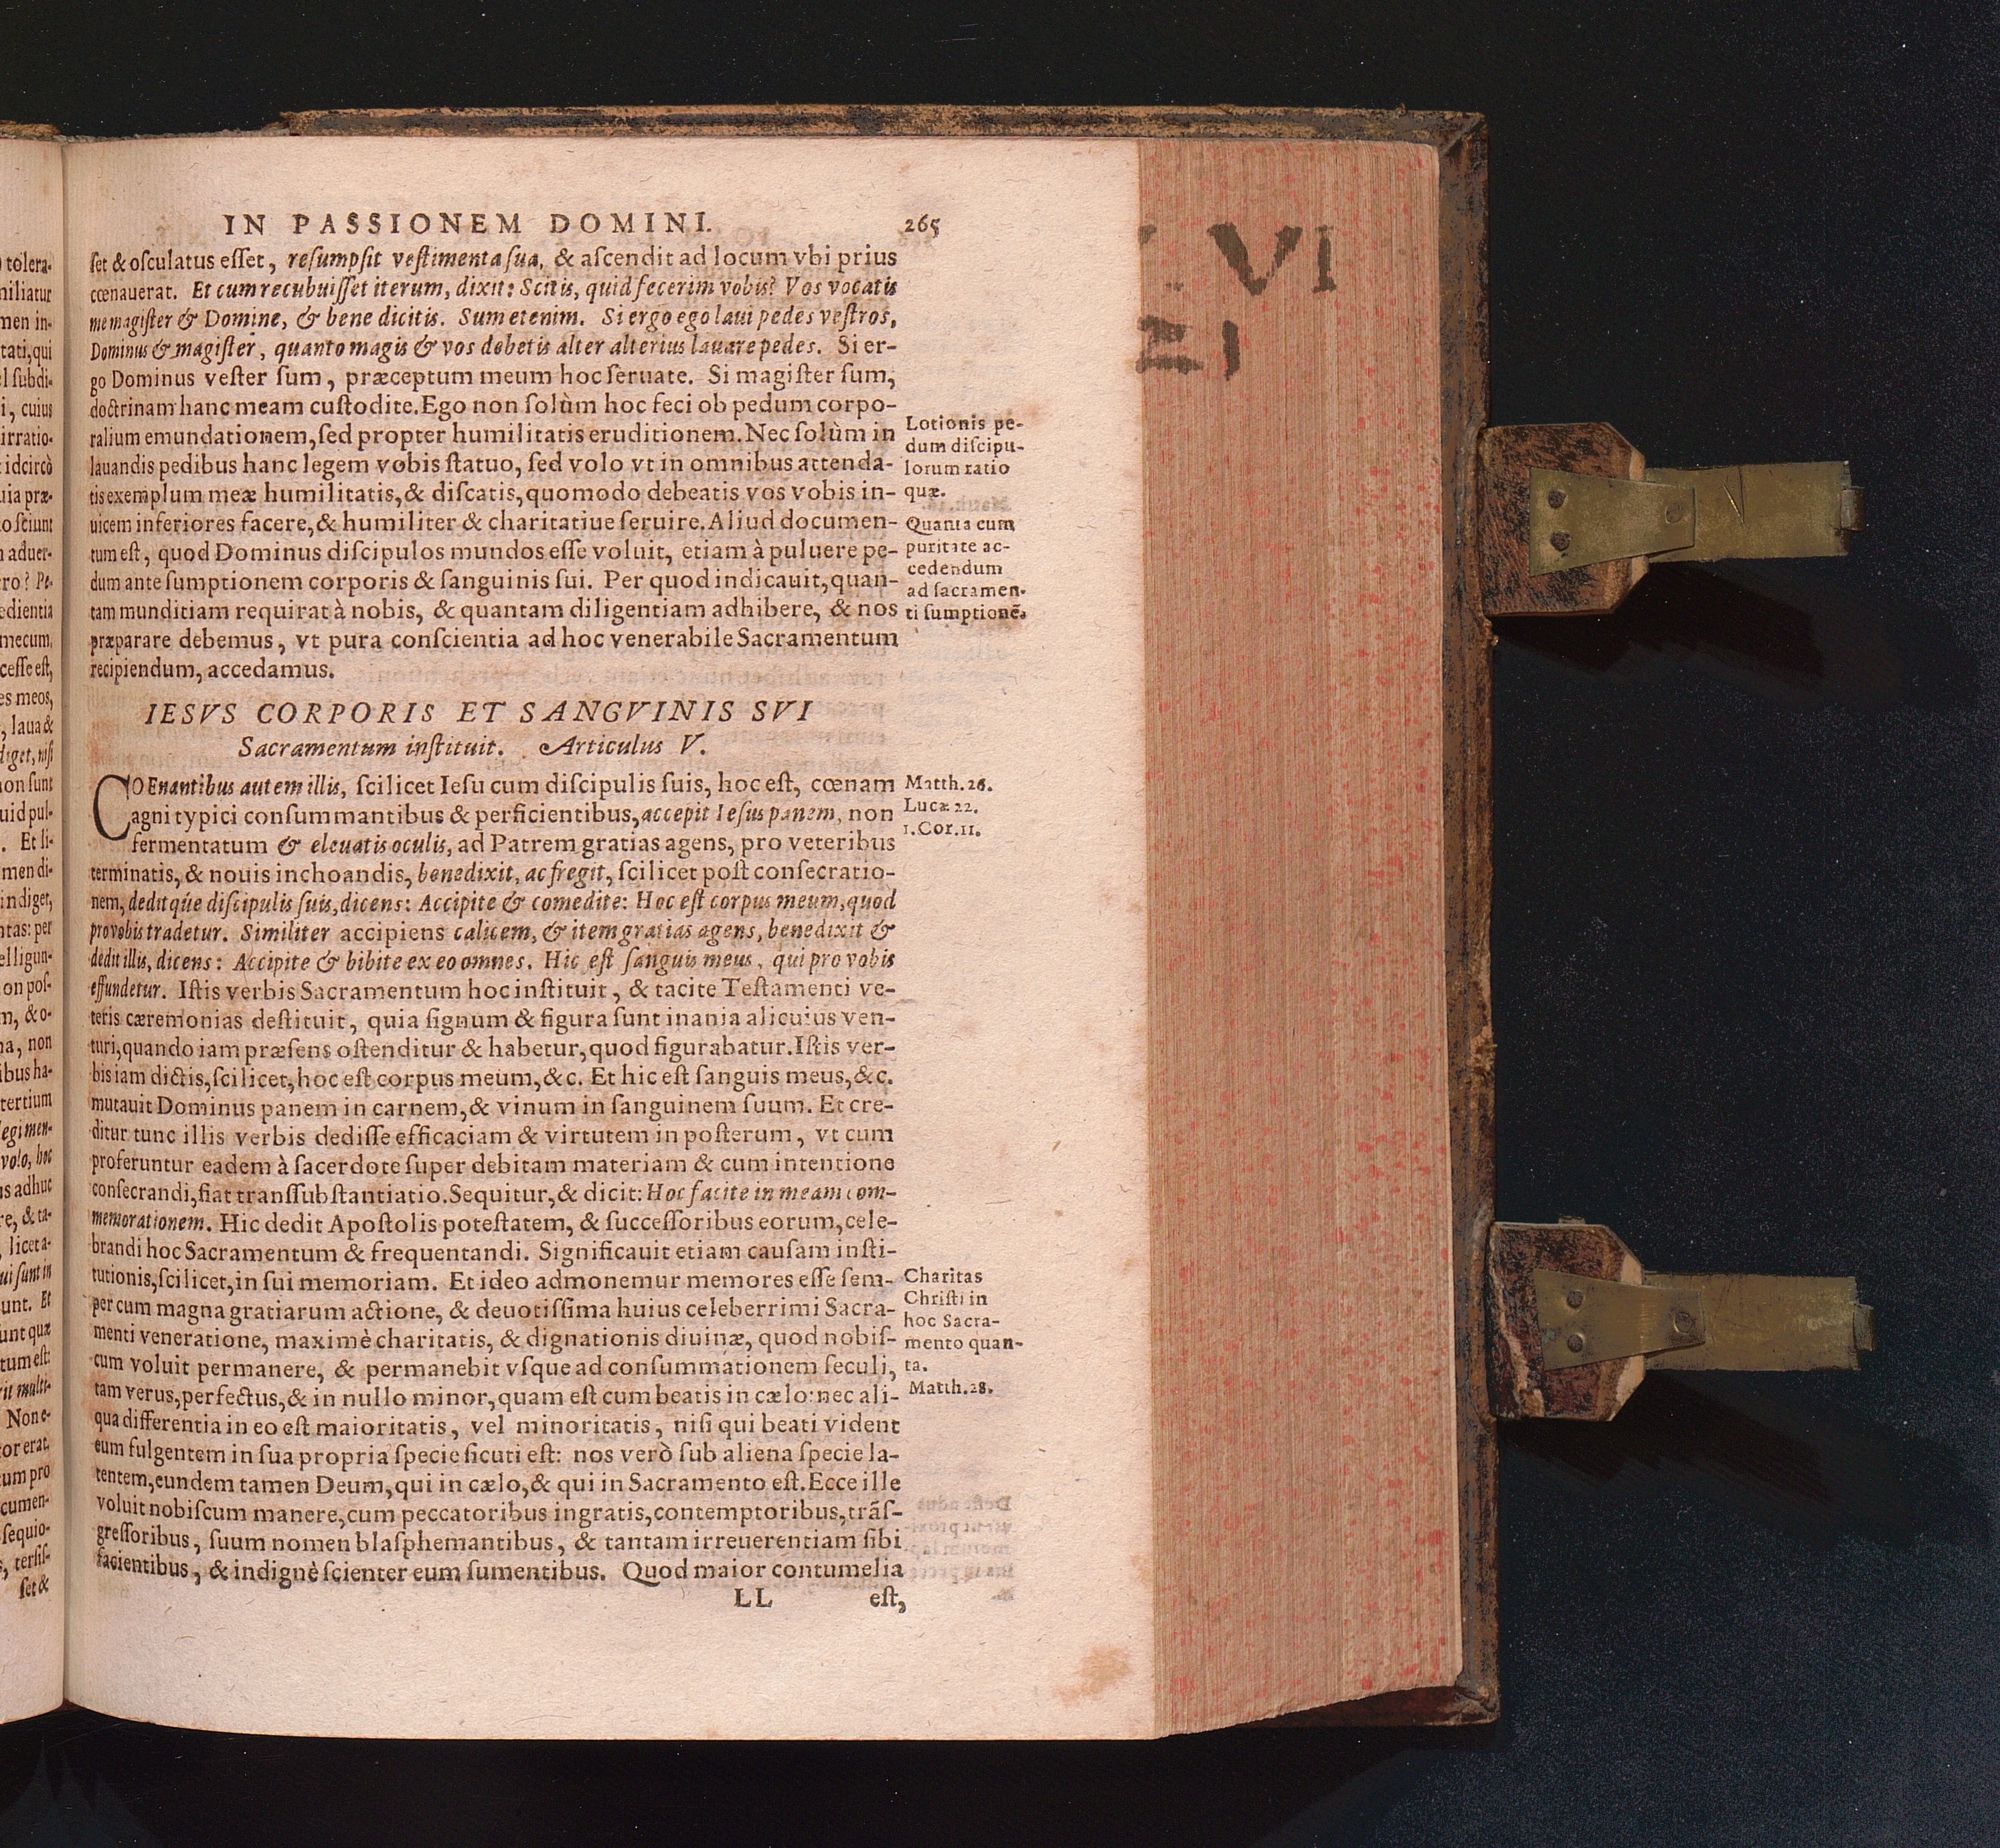 IN PASSIONEM DOMINI. 265
ſet & oſculatus eſſet, reſumpſit veſtimenta ſua, & aſcendit ad locum vbi prius
cœnauerat. Et cum recubuiſſet iterum, dixit: Scitis, quid fecerim vobis? Vos vocatis
me magiſter & Domine, & bene dicitis. Sum etenim. Si ergo ego laui pedes veſtros,
Dominus & magiſter, quanto magis & vos debetis alter alterius lauare pedes. Si er-
go Dominus veſter ſum, præceptum meum hoc ſeruate. Si magiſter ſum,
doctrinam hanc meam cuſtodite. Ego non ſolùm hoc feci ob pedum corpo-
ralium emundationem, ſed propter humilitatis eruditionem. Nec ſolùm in
lauandis pedibus hanc legem vobis ſtatuo, ſed volo vt in omnibus attenda-
tis exemplum meæ humilitatis, & diſcatis, quomodo debeatis vos vobis in-
uicem inferiores facere, & humiliter & charitatiue ſeruire. Aliud documen-
tum eſt, quod Dominus diſcipulos mundos eſſe voluit, etiam à puluere pe-
dum ante ſumptionem corporis & ſanguinis ſui. Per quod indicauit, quan-
tam munditiam requirat à nobis, & quantam diligentiam adhibere, & nos
præparare debemus, vt pura conſcientia ad hoc venerabile Sacramentum
recipiendum, accedamus.
Lotionis pe-
dum diſcipu-
lorum ratio
quæ.
Quanta cum
puritate ac-
cedendum
ad ſacramen-
ti ſumptionẽ.
IESVS CORPORIS ET SANGVINIS SVI
Sacramentum inſtituit. Articulus V.
COEnantibus autem illis, ſcilicet Ieſu cum diſcipulis ſuis, hoc eſt, cœnam
agni typici conſummantibus & perficientibus, accepit Ieſus panem, non
fermentatum & eleuatis oculis, ad Patrem gratias agens, pro veteribus
terminatis, & nouis inchoandis, benedixit, ac fregit, ſcilicet poſt conſecratio-
nem, deditque diſcipulis ſuis, dicens: Accipite & comedite: Hoc eſt corpus meum, quod
pro vobis tradetur. Similiter accipiens calicem, & item gratias agens, benedixit &
dedit illis, dicens: Accipite & bibite ex eo omnes. Hic eſt ſanguis meus, qui pro vobis
effundetur. Iſtis verbis Sacramentum hoc inſtituit, & tacite Teſtamenti ve-
teris cæremonias deſtituit, quia ſignum & figura ſunt inania alicuius ven-
turi, quando iam præſens oſtenditur & habetur, quod figurabatur. Iſtis ver-
bis iam dictis, ſcilicet, hoc eſt corpus meum, &c. Et hic eſt ſanguis meus, &c.
mutauit Dominus panem in carnem, & vinum in ſanguinem ſuum. Et cre-
ditur tunc illis verbis dediſſe efficaciam & virtutem in poſterum, vt cum
proferuntur eadem à ſacerdote ſuper debitam materiam & cum intentione
conſecrandi, fiat tranſſubſtantiatio. Sequitur, & dicit: Hoc facite in meam com-
memorationem. Hic dedit Apoſtolis poteſtatem, & ſucceſſoribus eorum, cele-
brandi hoc Sacramentum & frequentandi. Significauit etiam cauſam inſti-
tutionis, ſcilicet, in ſui memoriam. Et ideo admonemur memores eſſe ſem-
per cum magna gratiarum actione, & deuotiſſima huius celeberrimi Sacra-
menti veneratione, maximè charitatis, & dignationis diuinæ, quod nobiſ-
cum voluit permanere, & permanebit vſque ad conſummationem ſeculi,
tam verus, perfectus, & in nullo minor, quam eſt cum beatis in cælo: nec ali-
qua differentia in eo eſt maioritatis, vel minoritatis, niſi qui beati vident
eum fulgentem in ſua propria ſpecie ſicuti eſt: nos verò ſub aliena ſpecie la-
tentem, eundem tamen Deum, qui in cælo, & qui in Sacramento eſt. Ecce ille
voluit nobiſcum manere, cum peccatoribus ingratis, contemptoribus, trãſ-
greſſoribus, ſuum nomen blaſphemantibus, & tantam irreuerentiam ſibi
facientibus, & indignè ſcienter eum ſumentibus. Quod maior contumelia
Matth. 26.
Lucæ 22.
1. Cor. 11.
Charitas
Chriſti in
hoc Sacra-
mento quan-
ta.
Matth. 28.
LL eſt,
VI